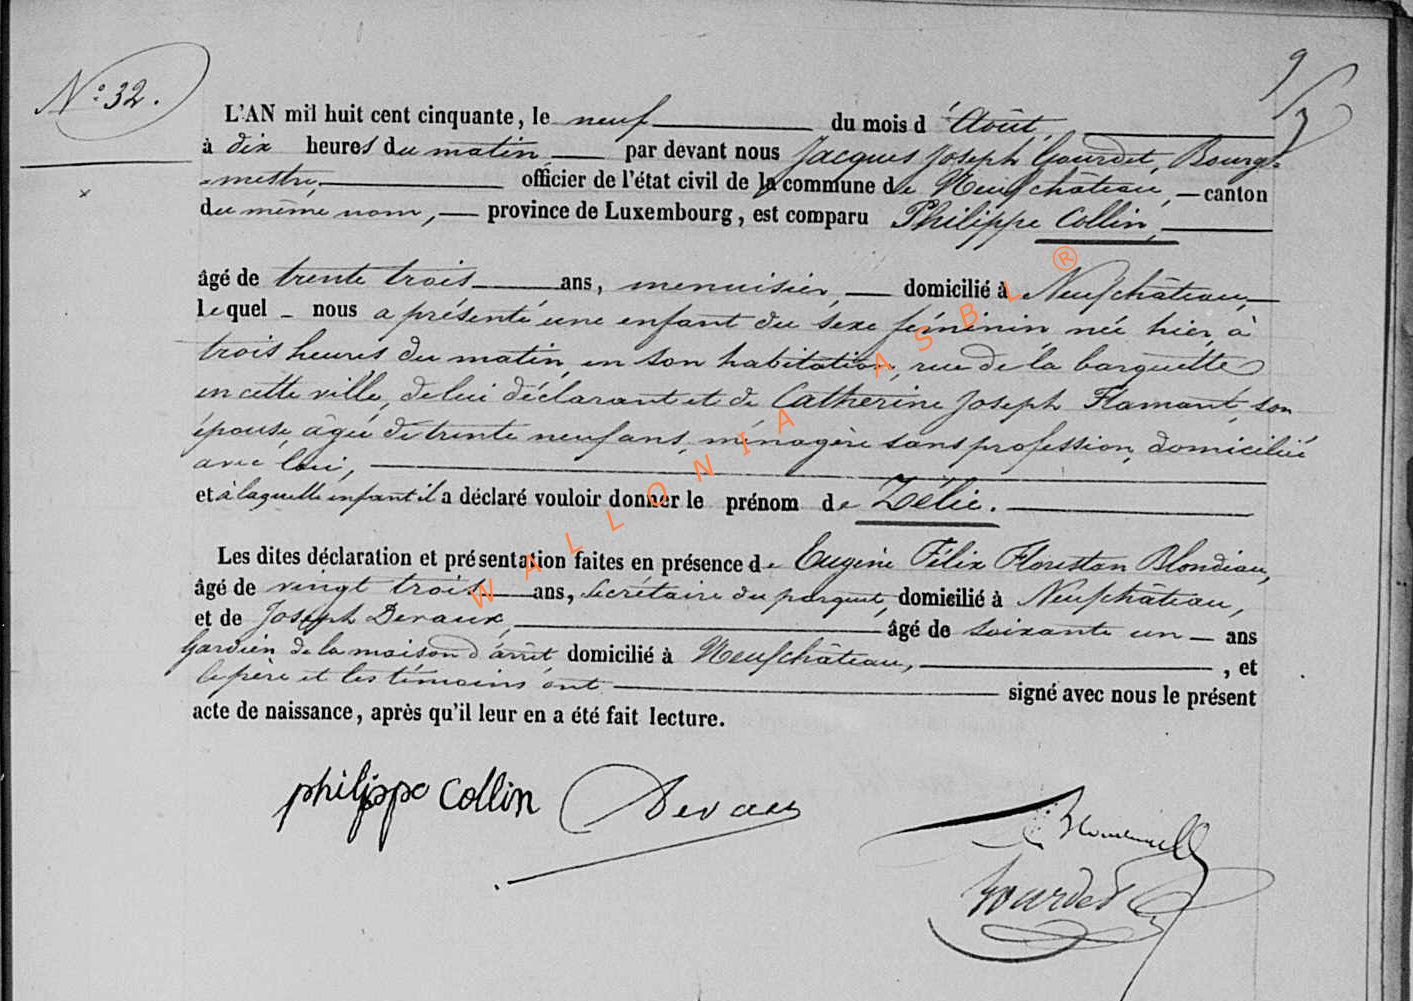 N° 32.
L'AN mil huit cent cinquante, le neuf du mois d'Août,
à dix heures du matin, par devant nous Jacques Joseph Gourdet, Bourg-
-mestre, officier de l'état civil de la commune de Neufchâteau, canton
du même nom, province de Luxembourg, est comparu Philippe Collin,
âgé de trente trois ans, menuisier, domicilié à Neufchâteau,
lequel nous a présenté une enfant du sexe féminin née hier, à
trois heures du matin, en son habitation, rue de la barquette
en cette ville, de lui déclarant et de Catherine Joseph Flamant, son
épouse, âgée de trente neuf ans, ménagère sans profession, domiciliée
avec lui,
et à laquelle enfant il a déclaré vouloir donner le prénom de Zélie.
Les dites déclaration et présentation faites en présence de Eugène Félix Florestan Blondiau,
âgé de vingt trois ans, Secrétaire du parquet, domicilié à Neufchâteau,
et de Joseph Devaux, âgé de soixante un ans
Gardien de la maison d'arrêt domicilié à Neufchâteau, , et
le père et les témoins ont signé avec nous le présent
acte de naissance, après qu'il leur en a été fait lecture.
philippe collin Devaux
Gourdet
WALLONIA ASBL ®